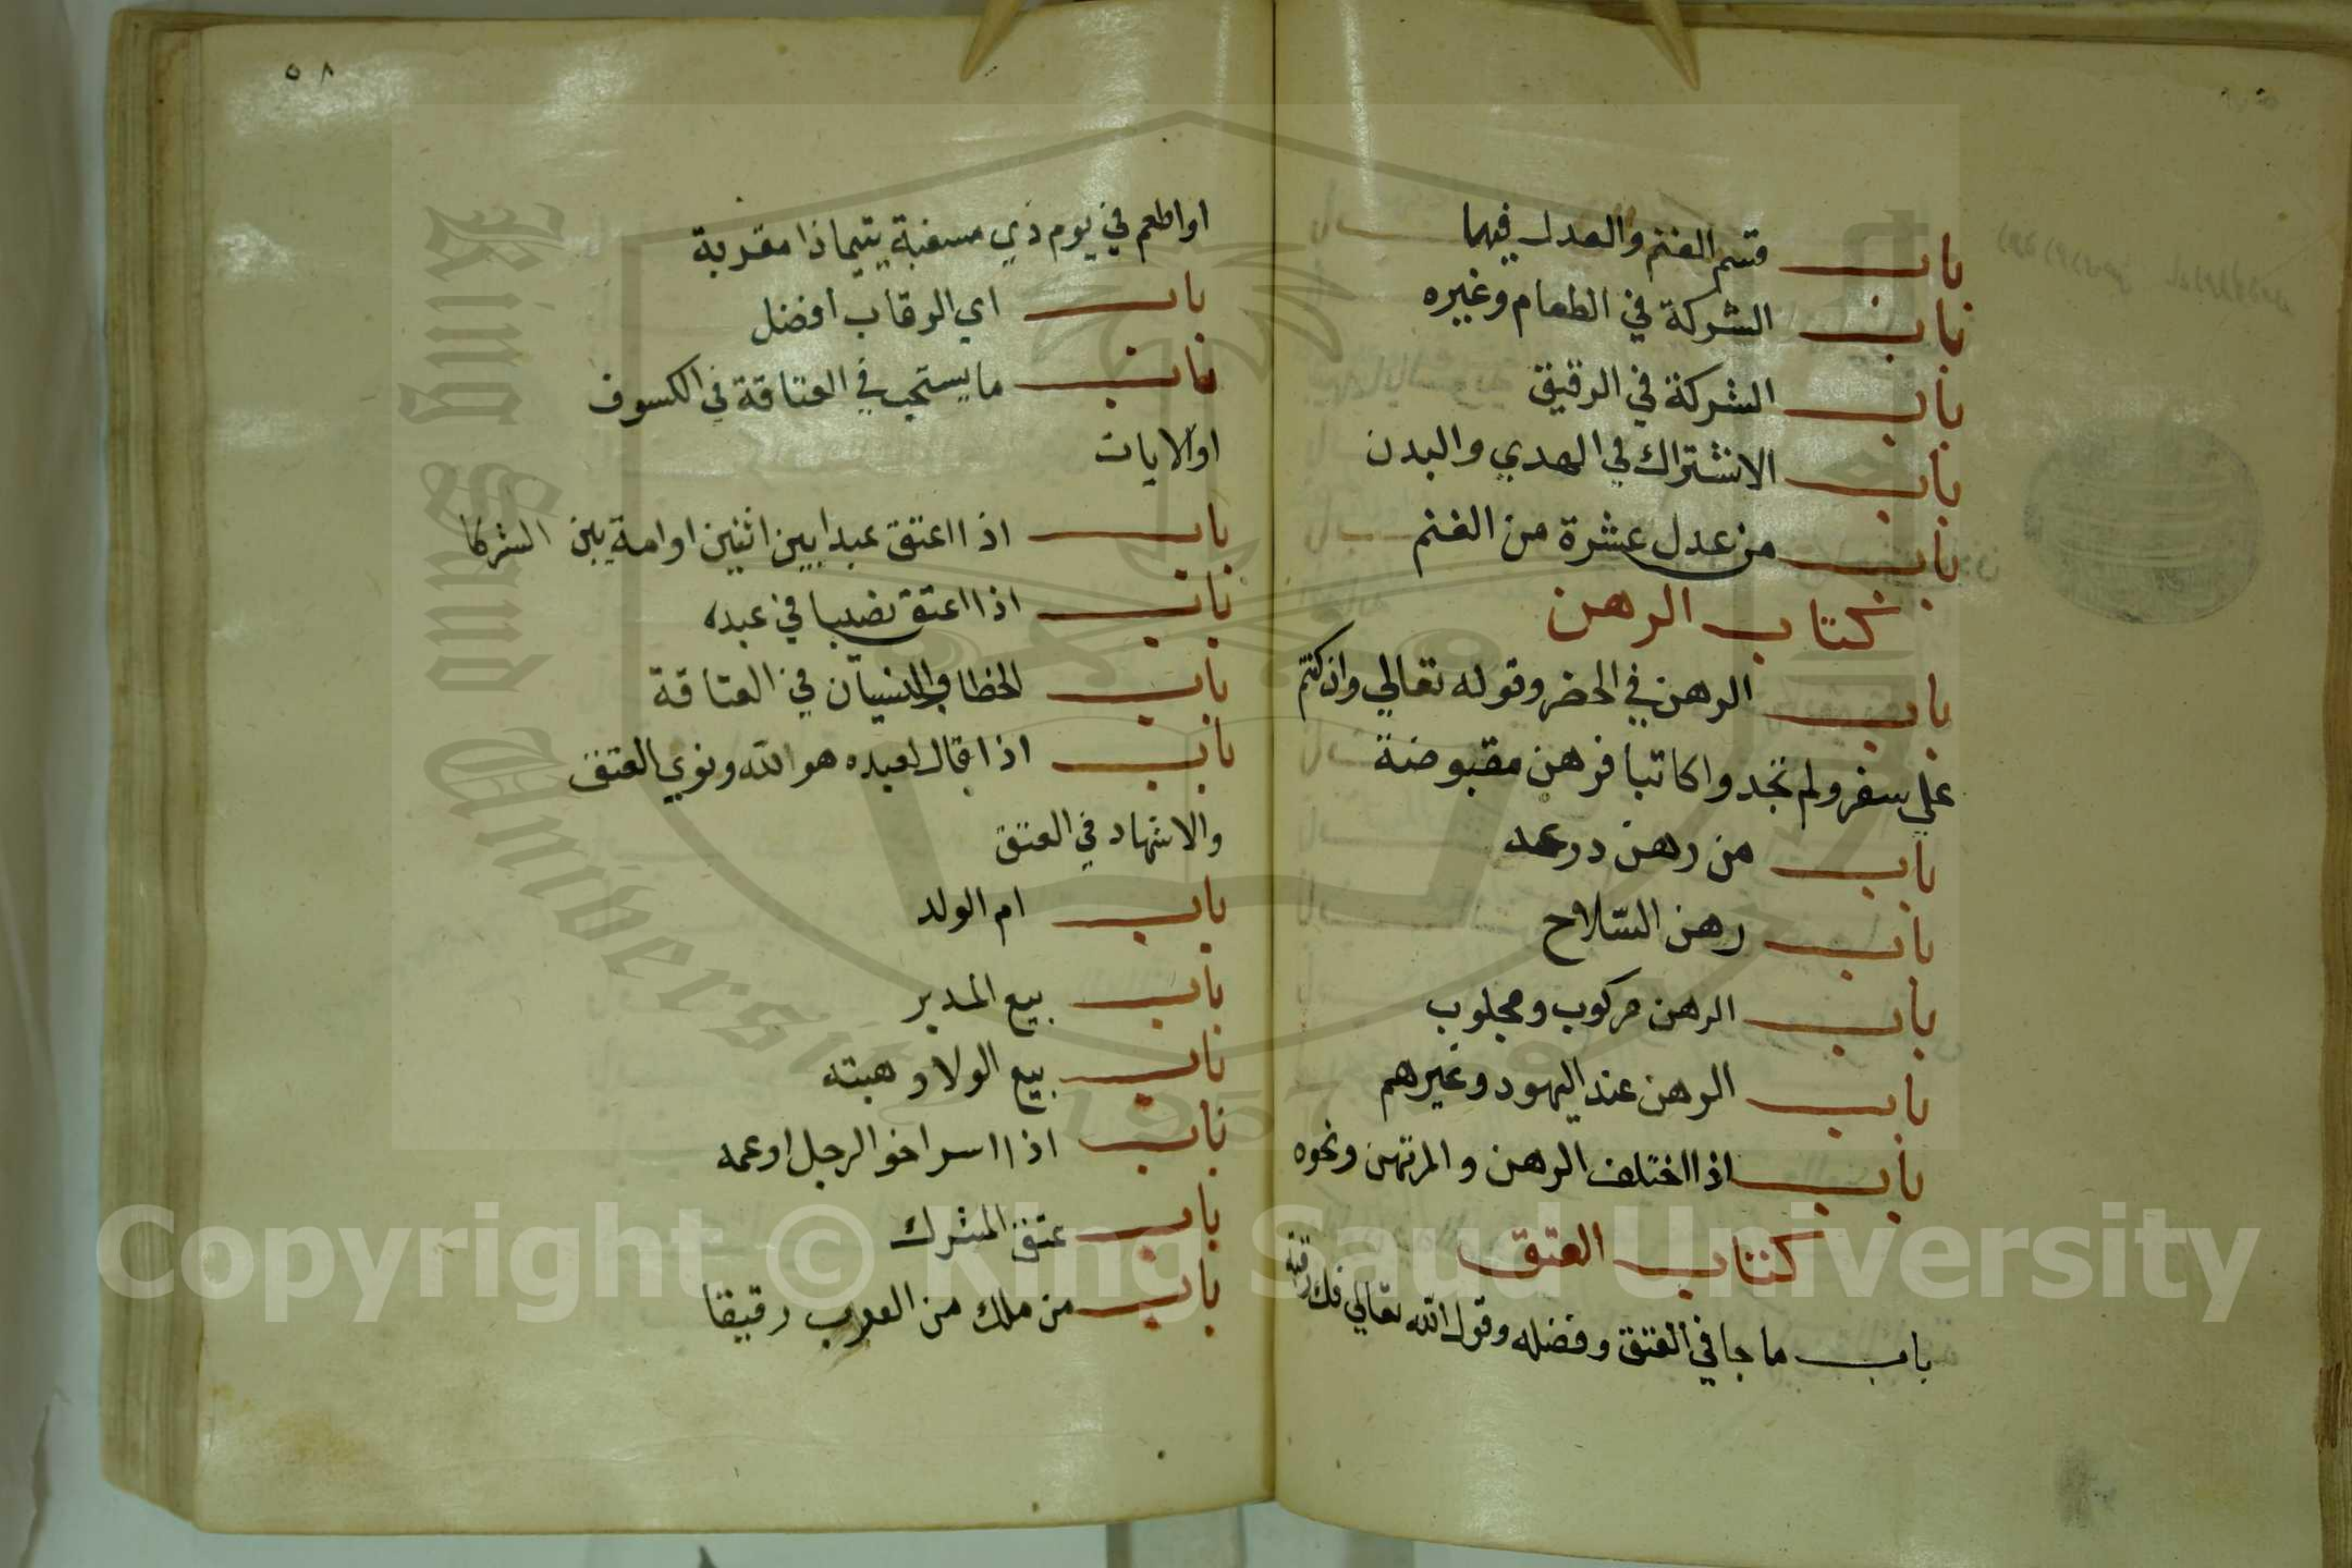 باب قسم الغنم والعدل فيها
باب الشركة في الطعام وغيره
باب الشركة في الرقيق
باب الاشتراك في الهدي والبدن
باب من عدل عشرة من الغنم
كتاب الرهن
باب الرهن في الحضر وقوله تعالي وان كنتم
علي سفر ولم تجدوا كاتبا فرهن مقبوضة
باب من رهن درعه
باب رهن السلاح
باب الرهن مركوب ومحلوب
باب الرهن عند اليهود وغيرهم
باب اذا اختلف الرهن والمرتهن ونحوه
كتاب العتق
باب ما جا في العتق وفضله وقول الله تعالي فك رقبة
٥٨
او اطعم في يوم ذي مسغبة يتيما ذا مقربة
باب اي الرقاب افضل
باب ما يستحب في العتاقة في الكسوف
او الايات
باب اذا اعتق عبدا بين اثنين او امة بين الشركا
باب اذا اعتق نصيبا في عبده
باب الخطا والنسيان في العتاقة
باب اذا قال لعبده هو لله ونوي العتق
والاشهاد في العتق
باب ام الولد
باب بيع المدبر
باب بيع الولا وهبته
باب اذا اسر اخو الرجل او عمه
باب عتق المشرك
باب من ملك من العرب رقيقا
King Saud University
1957
Copyright © King Saud University